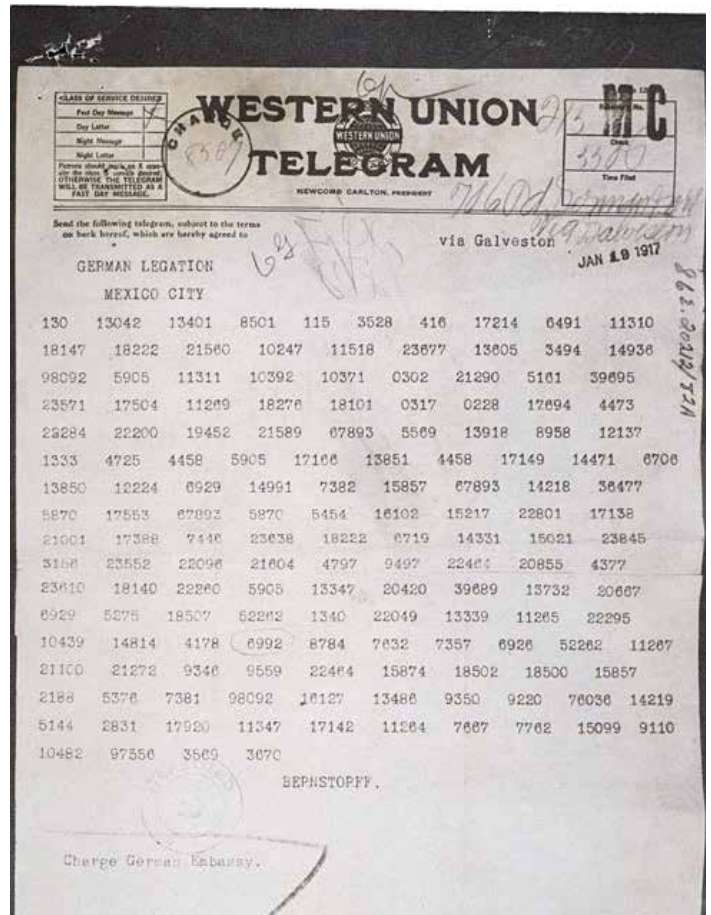 CLASS OF SERVICE DESIRED
Fast Day Message
Day Letter
Night Message
Night Letter
Patrons should mark an X opposite the class of service desired;
OTHERWISE THE TELEGRAM
WILL BE TRANSMITTED AS A
FAST DAY MESSAGE.
CHARGE
WESTERN UNION
WESTERN UNION
TELEGRAM
NEWCOMB CARLTON, PRESIDENT
MC
Check
Time Filed
Send the following telegram, subject to the terms
on back hereof, which are hereby agreed to
via Galveston
JAN 19 1917
GERMAN LEGATION
MEXICO CITY
130 13042 13401 8501 115 3528 416 17214 6491 11310
18147 18222 21560 10247 11518 23677 13605 3494 14936
98092 5905 11311 10392 10371 0302 21290 5161 39695
23571 17504 11269 18276 18101 0317 0228 17694 4473
22284 22200 19452 21589 67893 5569 13918 8958 12137
1333 4725 4458 5905 17166 13851 4458 17149 14471 6706
13850 12224 6929 14991 7382 15857 67893 14218 36477
5870 17553 67893 5870 5454 16102 15217 22801 17138
21001 17388 7446 23638 18222 6719 14331 15021 23845
3156 23552 22096 21604 4797 9497 22464 20855 4377
23610 18140 22260 5905 13347 20420 39689 13732 20667
6929 5275 18507 52262 1340 22049 13339 11265 22295
10439 14814 4178 6992 8784 7632 7357 6926 52262 11267
21100 21272 9346 9559 22464 15874 18502 18500 15857
2188 5376 7381 98092 16127 13486 9350 9220 76036 14219
5144 2831 17920 11347 17142 11264 7667 7762 15099 9110
10482 97556 3569 3670
BERNSTORFF.
Charge German Embassy.